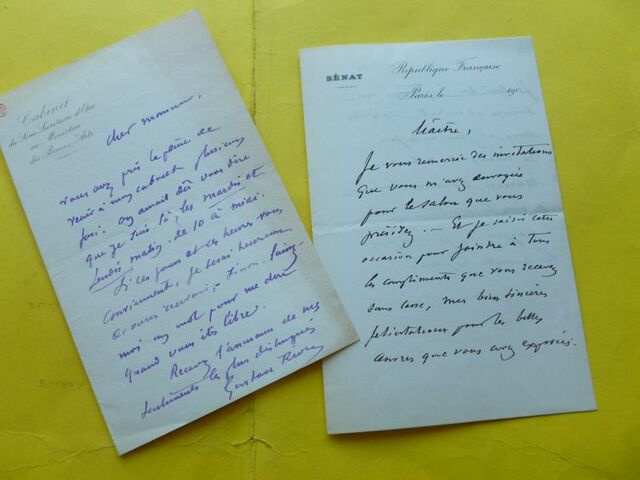 Cabinet
du Sous-Secrétaire d'Etat
au Ministère
des Beaux-Arts
Cher monsieur,
vous avez pris la peine de
venir à mon cabinet plusieurs
fois. On aurait dû vous dire
que je suis là, les mardis et
matin, de 10 à midi.
Si ces jours et ces heures vous
conviennent, je serai heureux
de vous recevoir; sinon, faites
moi un mot pour me dire
quand vous êtes libre.
Recevez l'assurance de mes
sentiments les plus distingués
Gustave Rivet
SÉNAT
République Française
Paris, le 190
Maître,
Je vous remercie des invitations
que vous m'avez envoyées
pour le Salon que vous
présidez. — Et je saisis cette
occasion pour joindre à tous
les compliments que vous recevez
sans cesse, mes bien sincères
félicitations pour les belles
œuvres que vous avez exposées.